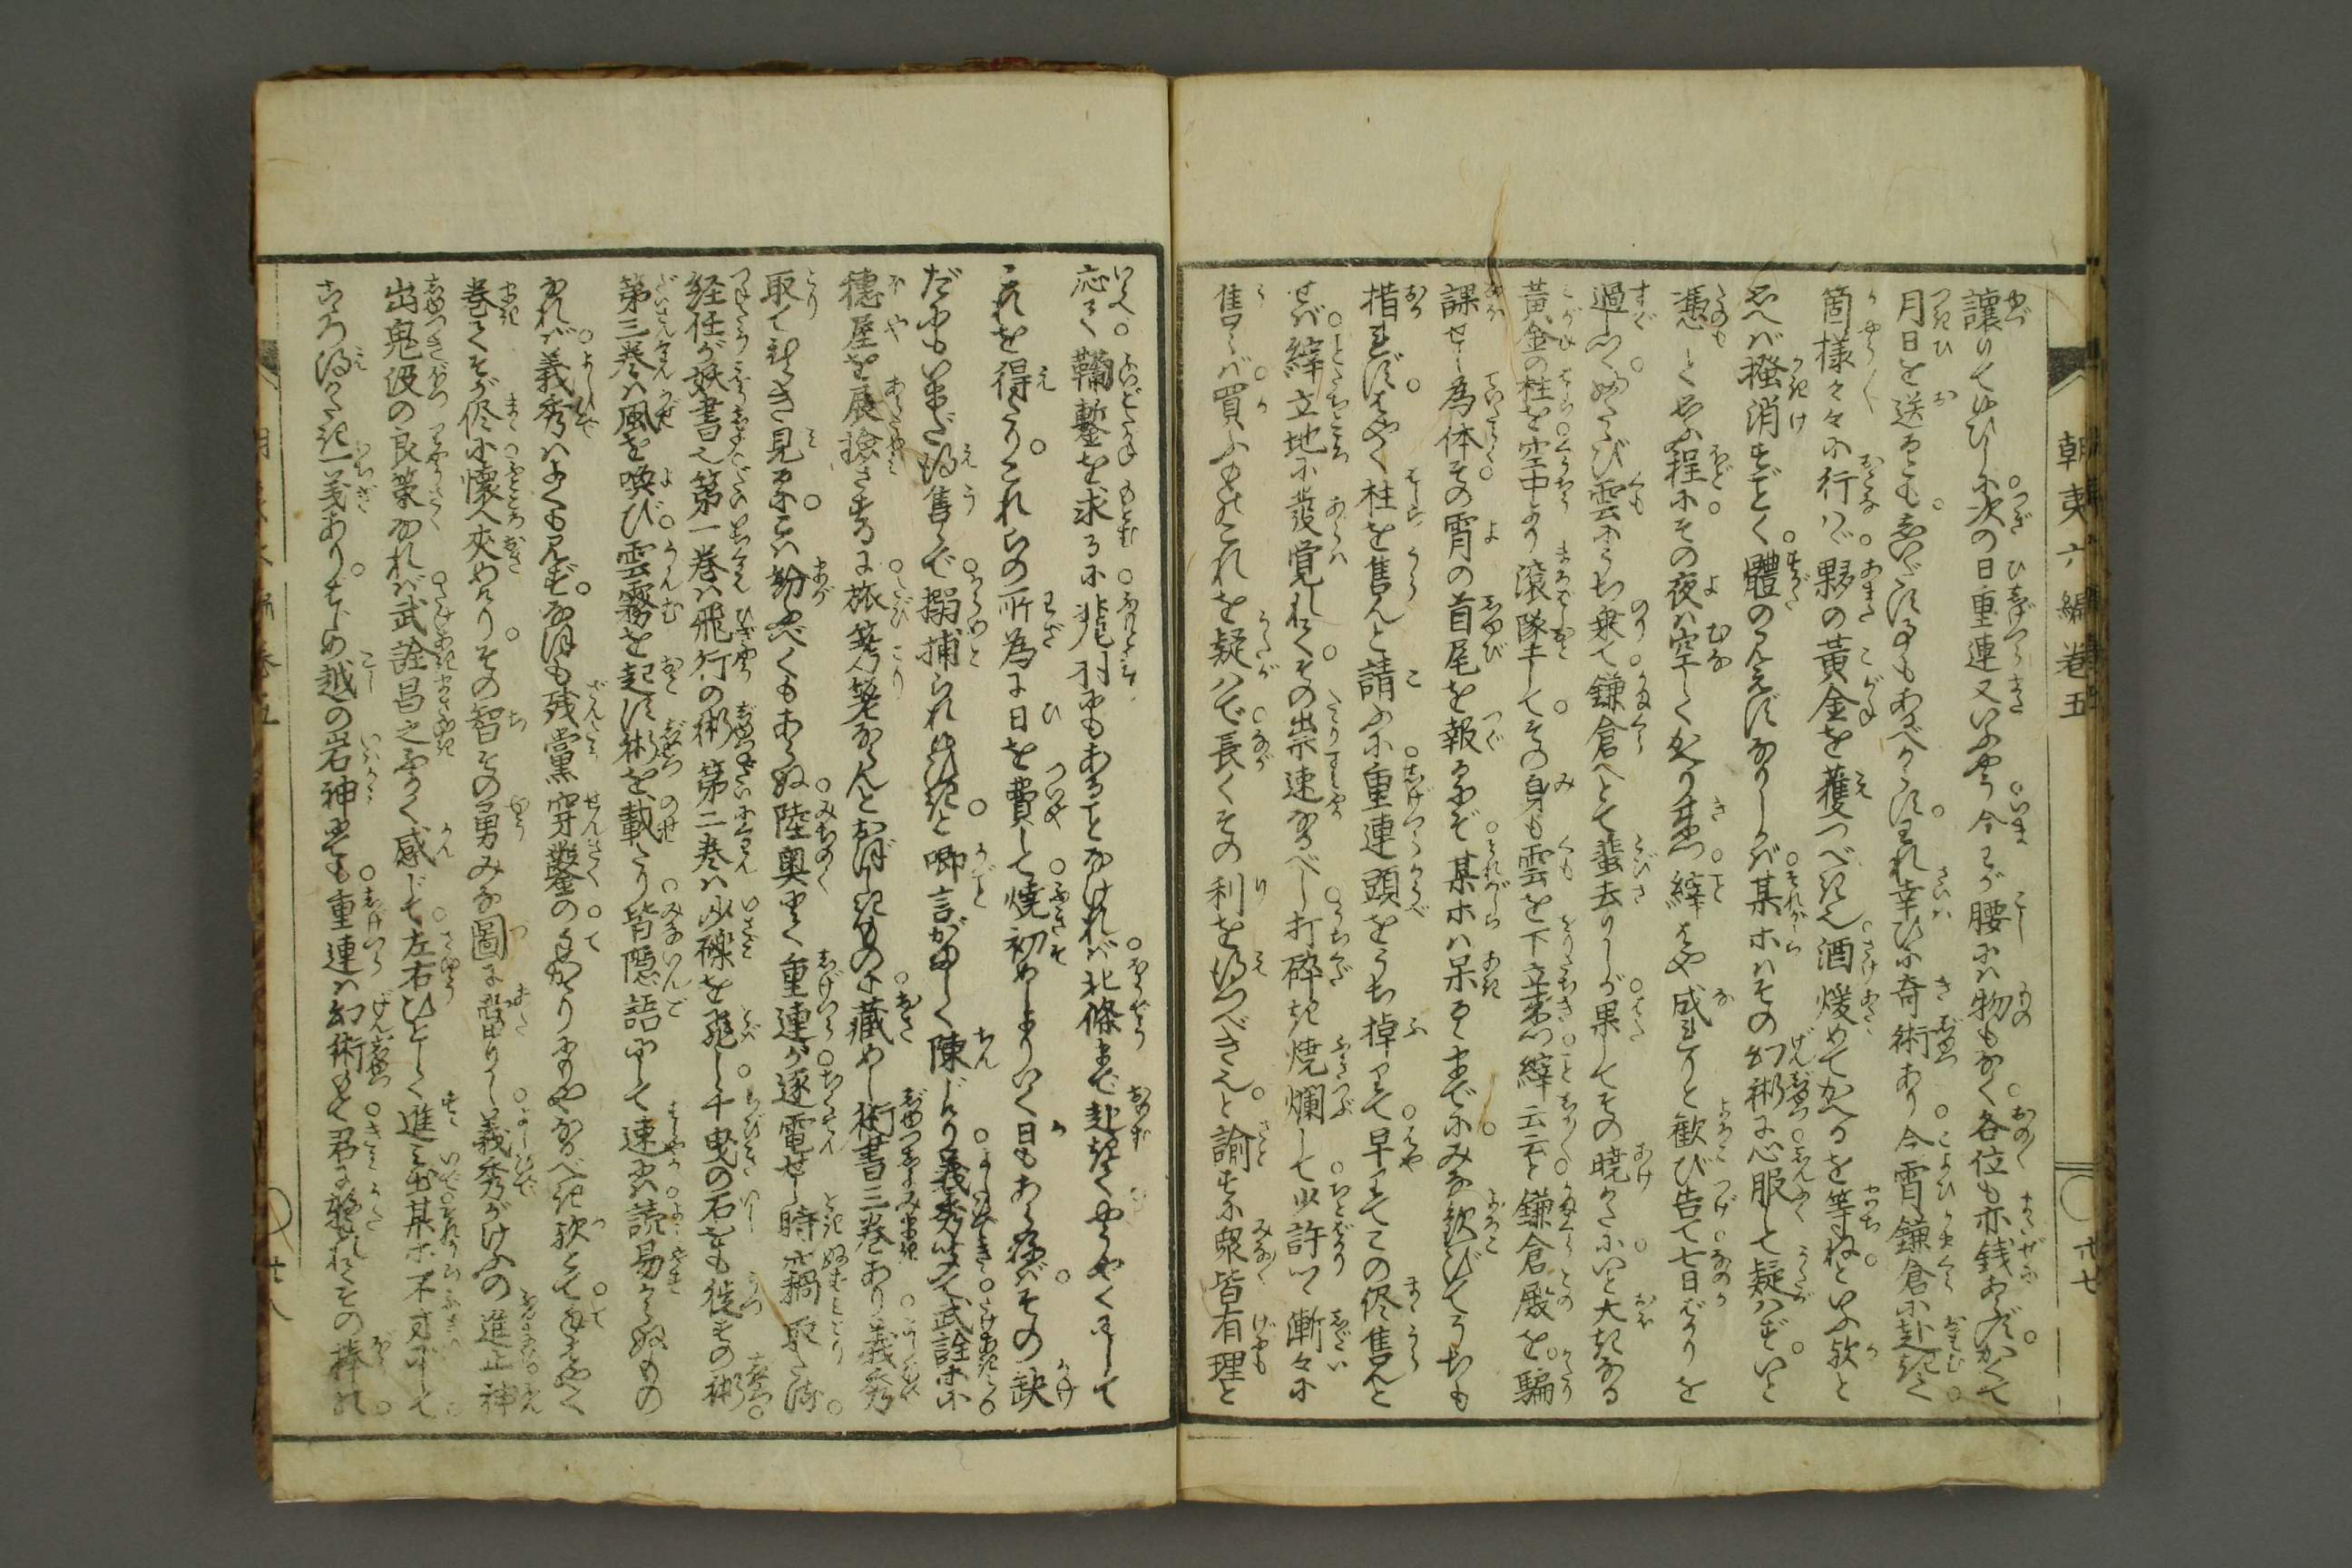 朝夷六編巻五
○廿七
讓りてゆひしに次の日重連又いふやう今わが腰には物もなく各位も亦銭あらずかくて
月日を送るとも
幸ひに奇術あり今霄鎌倉に赴きて
箇様々々に行はゞ夥の黄金を獲つべきぞ酒煖めてかへるを等ねといふ歟と
思へば掻消すごとく體の見えずなりしかば某ホはその幻術に心服して疑はずいと
憑しと思ふ程にその夜は空しくかへり来つ縡はや成れりと歓び告て七日ばかりを
過しつゝふたゝび雲にうち乗て鎌倉へとて蜚去りしが果してその暁かたにいと大きなる
黄金の柱を空中より滾墜してその身も雲を下立来つ縡云云と鎌倉殿を騙
課せし為体その霄の首尾を報るにぞ某ホは呆るゝまでにみな歓びてうちも
措れずはやく柱を售んと請ふに重連頭をうち掉りて早りてこの侭售んと
せば縡立地に發覚れてその祟速なるべし打砕き焼爛して少許づゝ漸々に
售らば買ふものこれを疑はで長くその利を得つべきぞと諭すに衆皆有理と
応へて鞴鏨を求るに
にもあることなければ北條まで赴きてやうやくにして
これを得たりこれらの所為に日を費して焼初めしよりいく日もあらねばその訣
だにもいまだ得售らで搦捕られ候ひきと喞言がましく陳じけり義秀は武詮ホに
德屋を展撿さするに旅篝篭ならんとおぼしきものに藏めし術書三巻あり義秀
取て熟き見るにこは紛ふべくもあらぬ陸奥にて重連が逐電せし時に竊取たる
経任が妖書也第一巻は飛行の術第二巻は沙礫を飛し千曳の石をも徙すの術
第三巻は風を喚び雲霧を起す術を載たり皆隠語にして速には読易からぬもの
なれば義秀はよくも見ずなほも残黨穿鑿の手がかりにもやなるべき歟とて手はやく
巻てそが侭に懐へ夾めけりその智その勇みな圖に當りし義秀がけふの進止神
出鬼没の良策なれば武詮昌之ふかく感じて左右ひとしく進み出某ホ不才にして
こゝろ得がたき一義ありはじめ越の岩神にても重連は幻術もて君に
その棒の